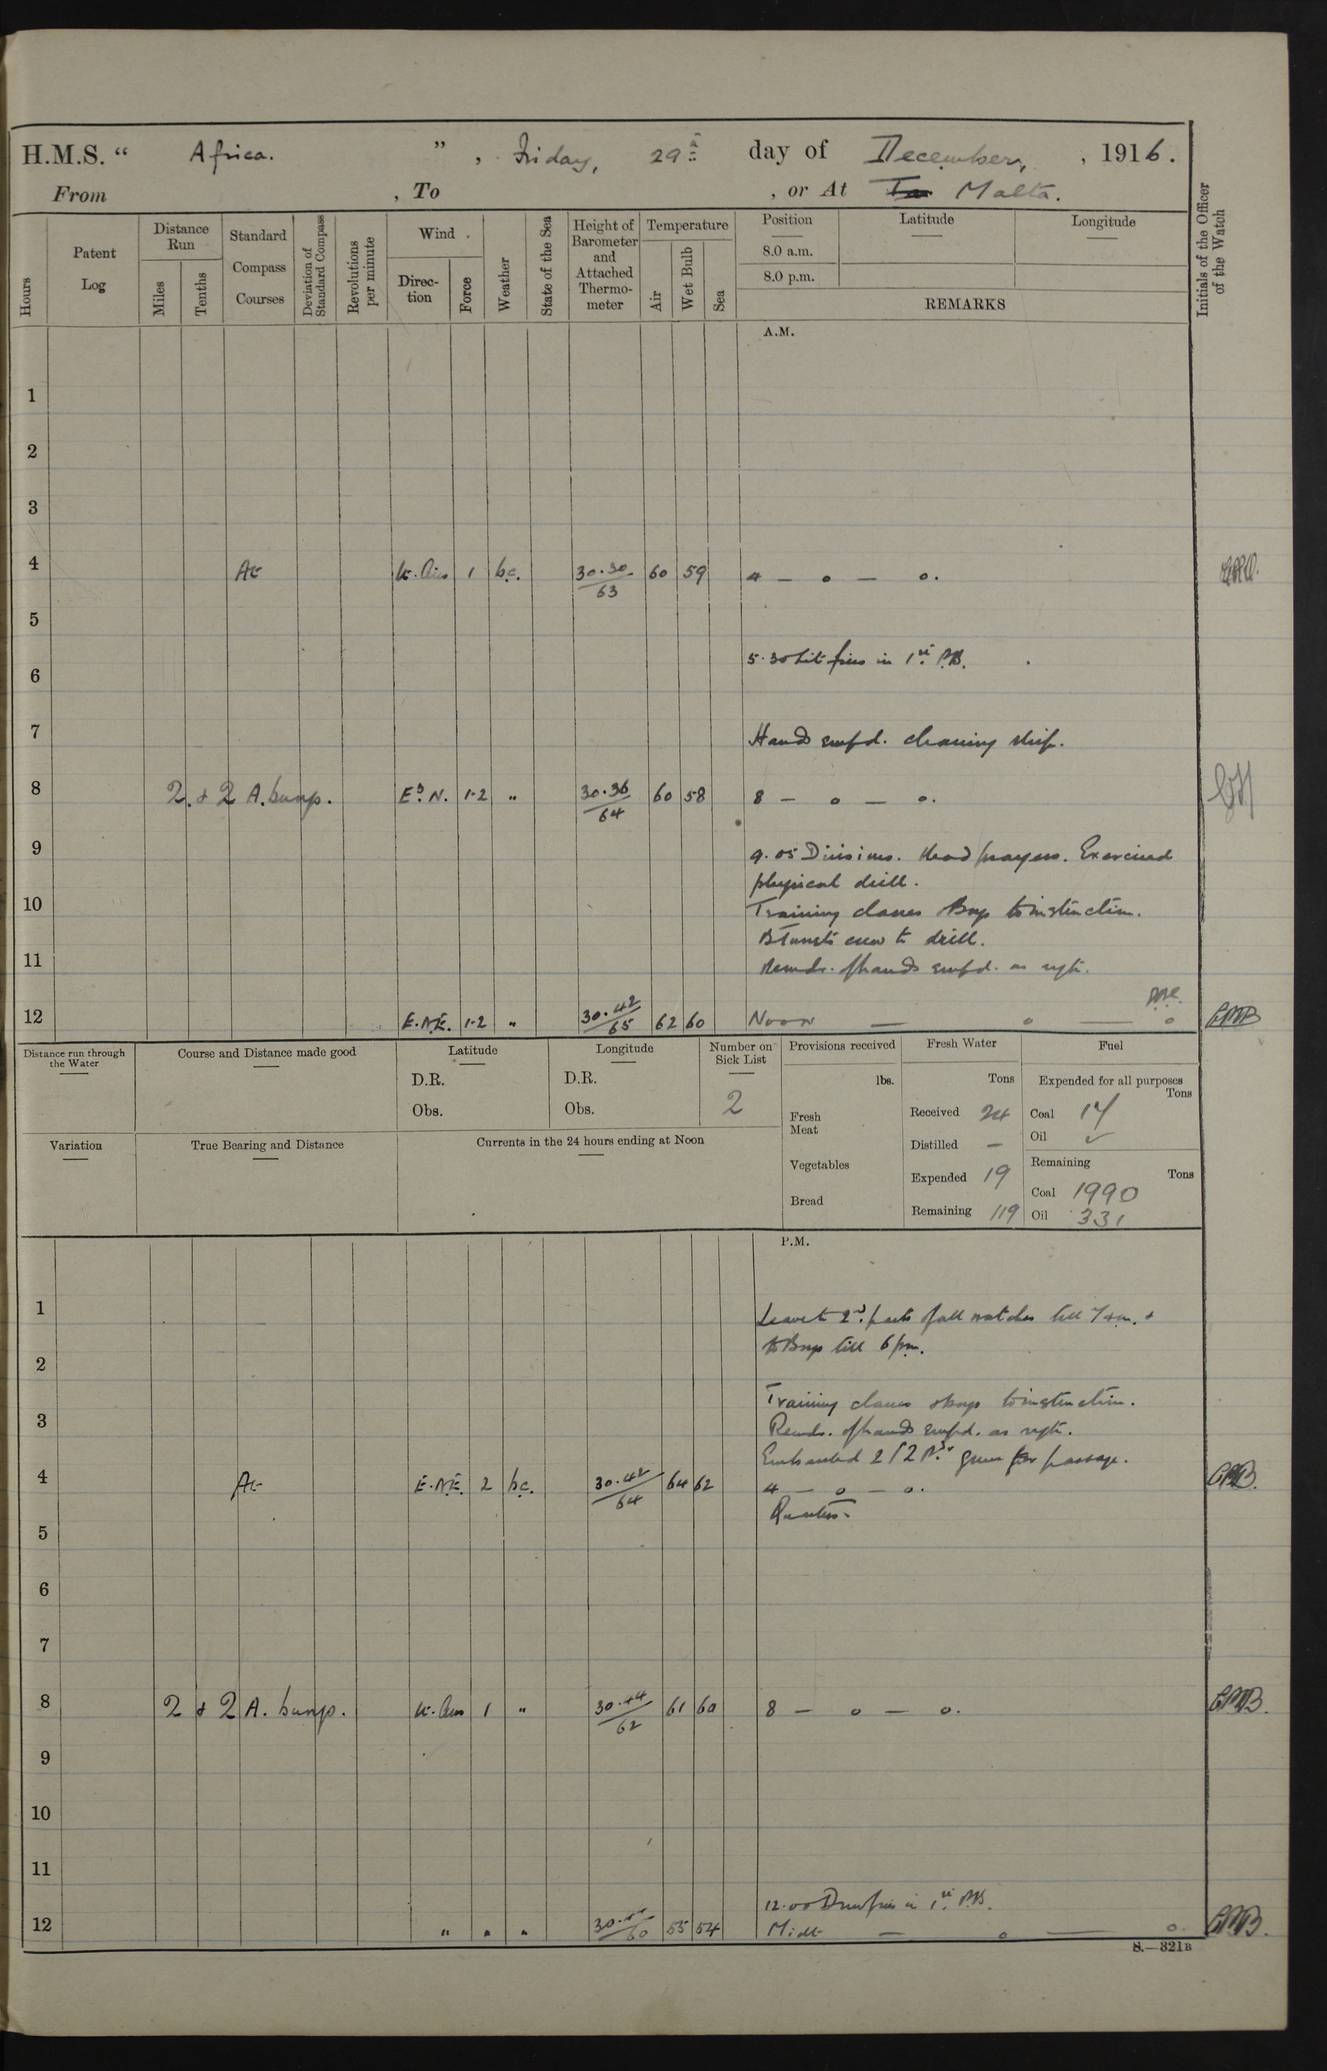 H.M.S. “ Africa. ” , Friday, 29th day of December, , 1916.
From , To , or At Malta.
Hours
Patent Log
Distance Run
Miles
Tenths
Standard Compass Courses
Deviation of Standard Compass
Revolutions per minute
Wind
Direc-tion
Force
Weather
State of the Sea
Height of Barometer and Attached Thermo-meter
Temperature
Air
Wet Bulb
Sea
Position
Latitude
Longitude
8.0 a.m.
8.0 p.m.
REMARKS
Initials of the Officer of the Watch
A.M.
1
2
3
4 At Lt. Airs 1 bc. 30.30/63 60 59 4 — o — o.
5
5.30 Lit fires in 1st P.B.
6
7 Hands empd. cleaning ship.
8 2 & 2 A. bunps. EbN. 1-2 " 30.36/64 60 58 8 — o — o.
9 9.05 Divisions. Read prayers. Exercised
physical drill.
10 Training classes Boys to instruction.
B Turrets crew to drill.
11 Remdr. of hands empd. as reqte.
12 E.N.E. 1-2 " 30.42/65 62 60 Noon — o — o
Distance run through the Water
Course and Distance made good
Latitude
D.R.
Obs.
Longitude
D.R.
Obs.
Number on Sick List
2
Provisions received
lbs.
Fresh Meat
Vegetables
Bread
Fresh Water
Tons
Received 24
Distilled —
Expended 19
Remaining 119
Fuel
Expended for all purposes
Tons
Coal 17
Oil
Remaining
Tons
Coal 1990
Oil 331
Variation
True Bearing and Distance
Currents in the 24 hours ending at Noon
P.M.
1 Leave to 2nd. parts of all watches till 7 am. &
2 to Boys till 6 pm.
Training classes & boys to instruction.
3 Remdr. of hands empd. as reqte.
Embarked 2 12 Pdr guns for passage.
4 At E.N.E. 2 bc. 30.42/64 64 62 4 — o — o.
Quarters.
5
6
7
8 2 & 2 A. bunps. Lt. Airs 1 " 30.44/62 61 60 8 — o — o.
9
10
11
12.00 Drew fires in 1st P.B.
12 " " " 55 54 Midt — o — o
S.—321B